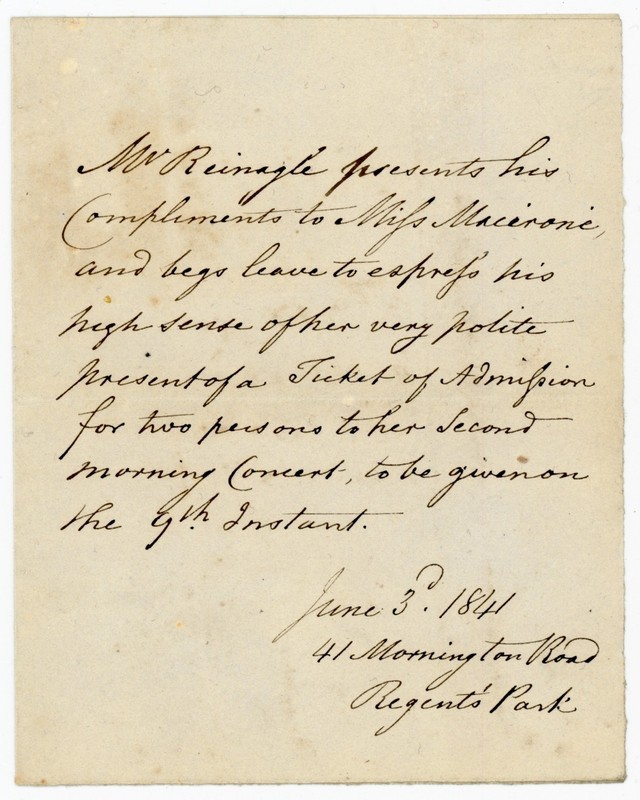 Mr Reinagle presents his
Compliments to Miſs Macironé,
and begs leave to expreſs his
high sense of her very polite
present of a Ticket of Admiſsion
for two persons to her Second
morning Concert, to be given on
the 9th. Instant.
June 3d. 1841
41 Mornington Road
Regent's Park